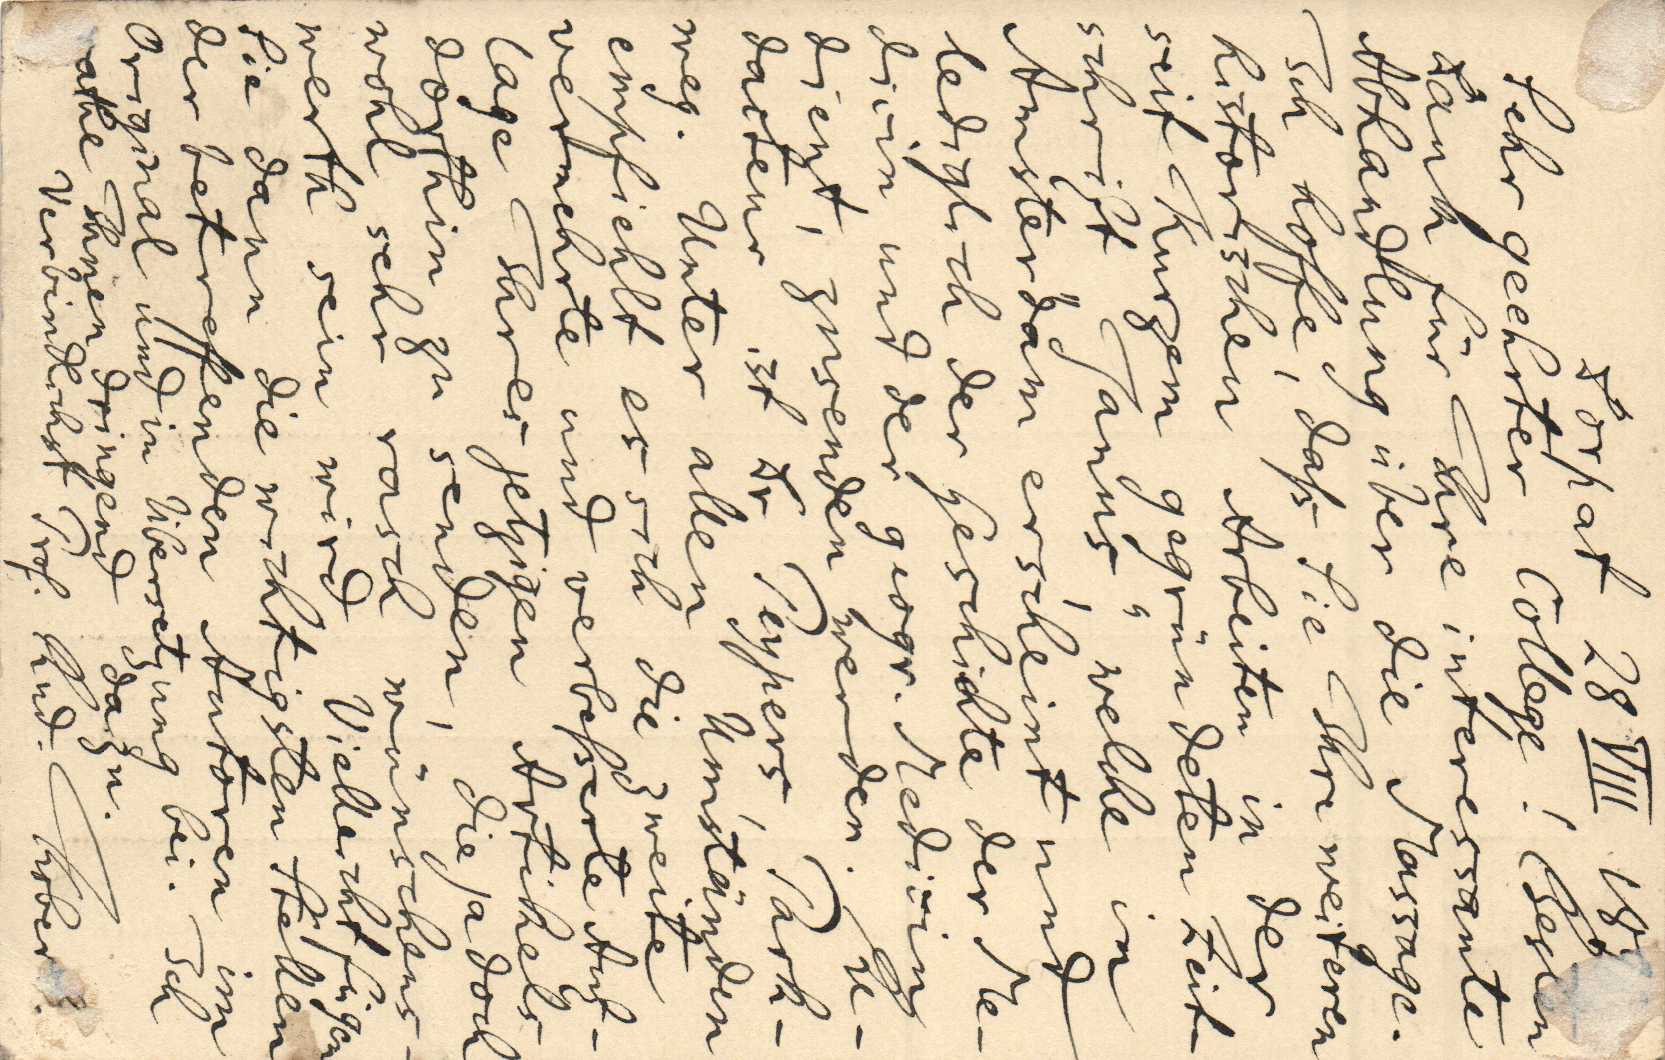 Dorpat 28 VIII 18
Sehr geehrter College! Besten
Dank für Ihre interessante
Abhandlung über die Massage.
Ich hoffe, daß Sie Ihre weiteren
historischen Arbeiten in der
seit Kurzem gegründeten Zeit-
schrift „Janus“, welche in
Amsterdam erscheint und
lediglich der Geschichte der Me-
dicin und der geogr. Medicin
dient, zusenden werden. Re-
dacteur ist Dr Peypers, Park-
weg. Unter allen Umständen
empfiehlt es sich die zweite
vermehrte und verbeßerte Auf-
lage Ihres jetzigen Artikels
dorthin zu senden, die ja doch
wohl sehr rasch wünschens-
werth sein wird. Vielleicht fügen
Sie dann die wichtigsten Stellen
der betreffenden Autoren im
Original und in Übersetzung bei. Ich
rathe Ihnen dringend dazu.
Verbindlichst Prof. Rud. Kober